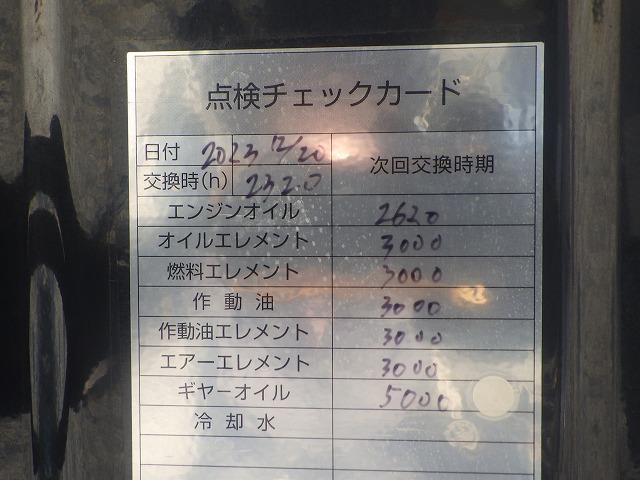 点検チェックカード
日付 2023 12/20 次回交換時期
交換時(h) 232.0
エンジンオイル 2620
オイルエレメント 3000
燃料エレメント 3000
作動油 3000
作動油エレメント 3000
エアーエレメント 3000
ギヤーオイル 5000
冷却水